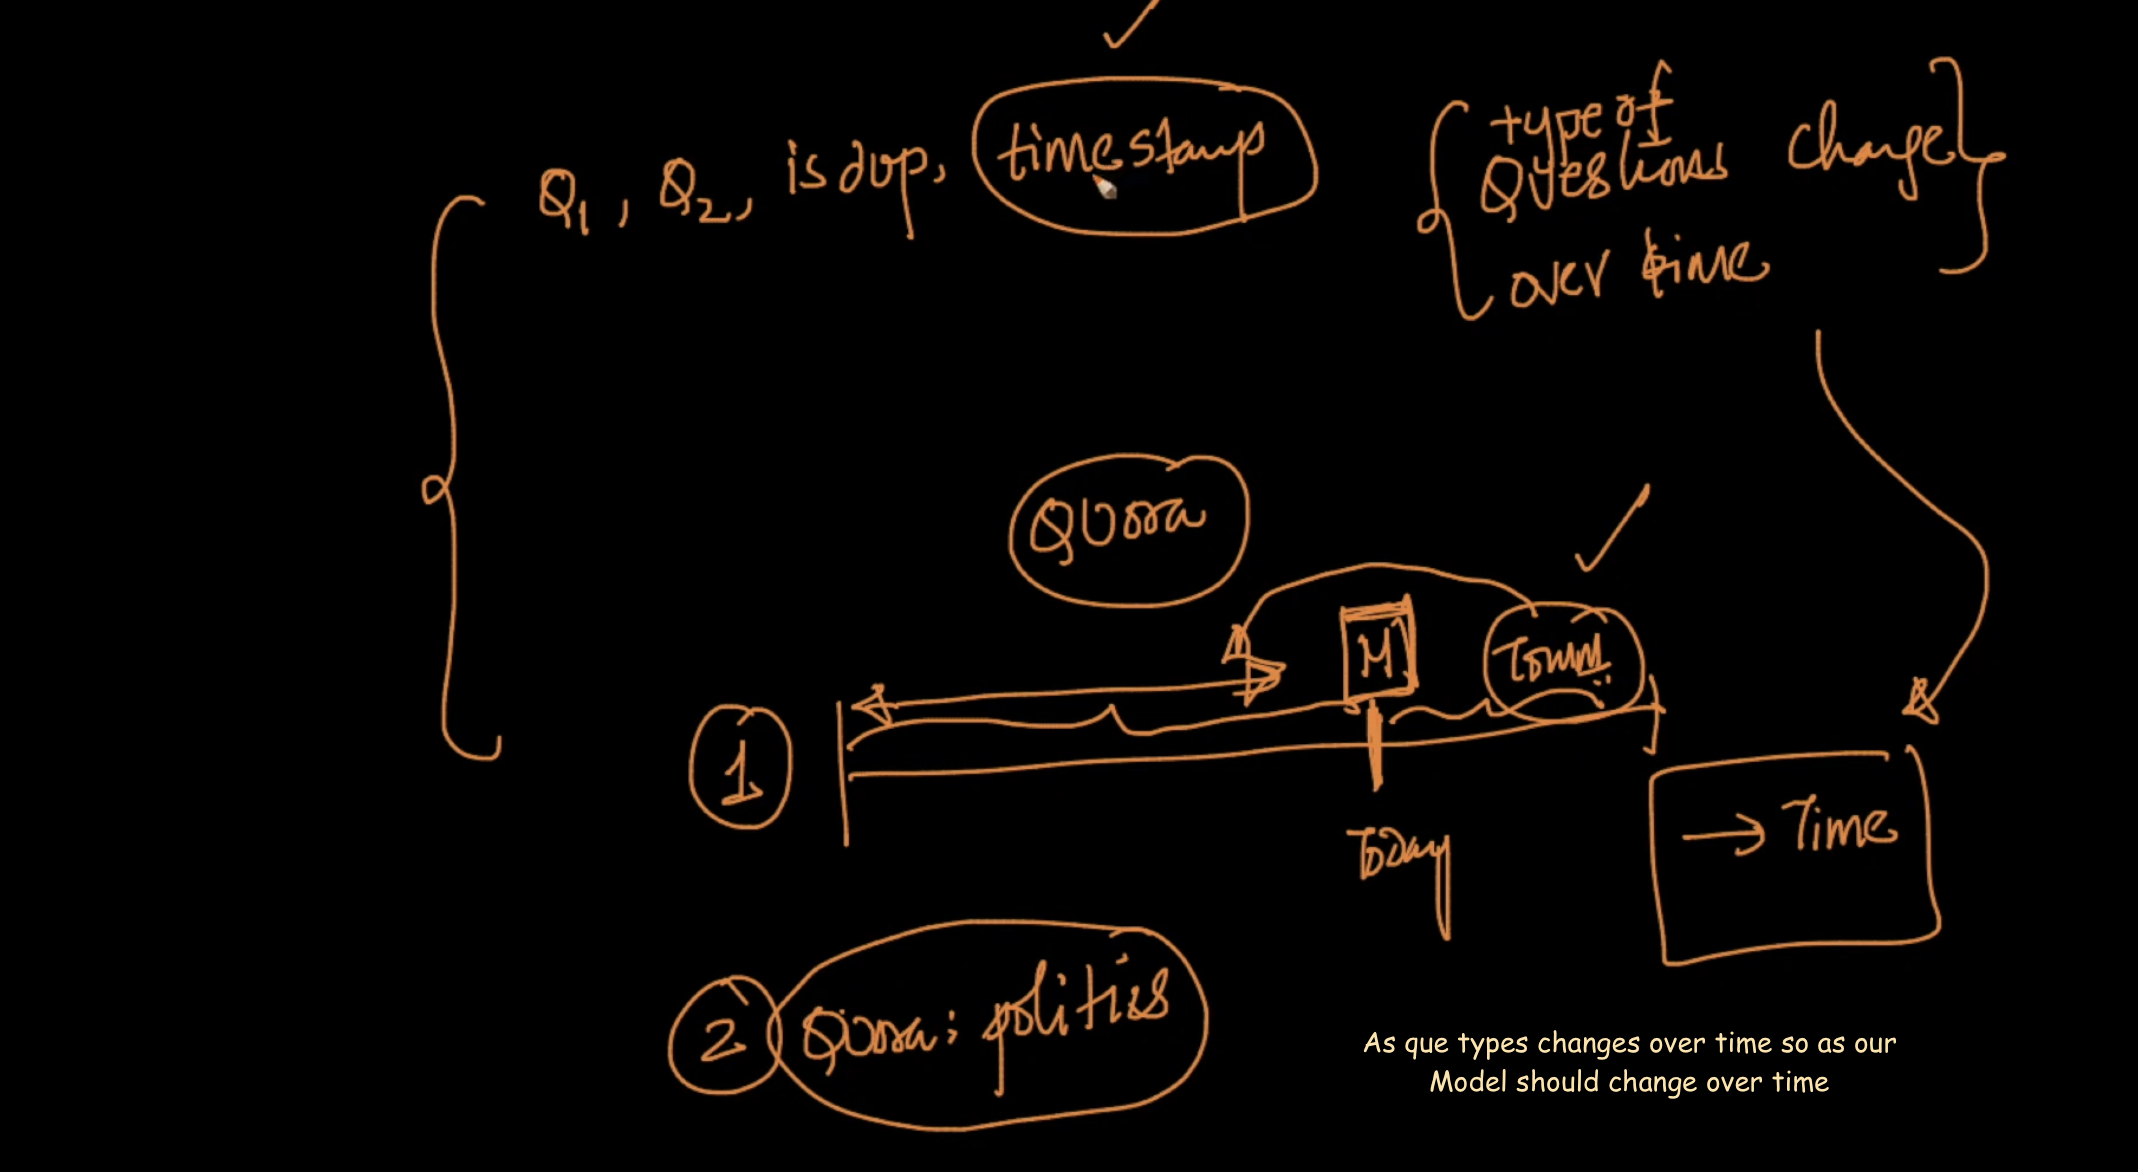 Q1, Q2, is dup, timestamp
type of
Questions change
over time
Quora
M
Tomm..
1
Today
→ Time
2 Quora: politics
As que types changes over time so as our
Model should change over time